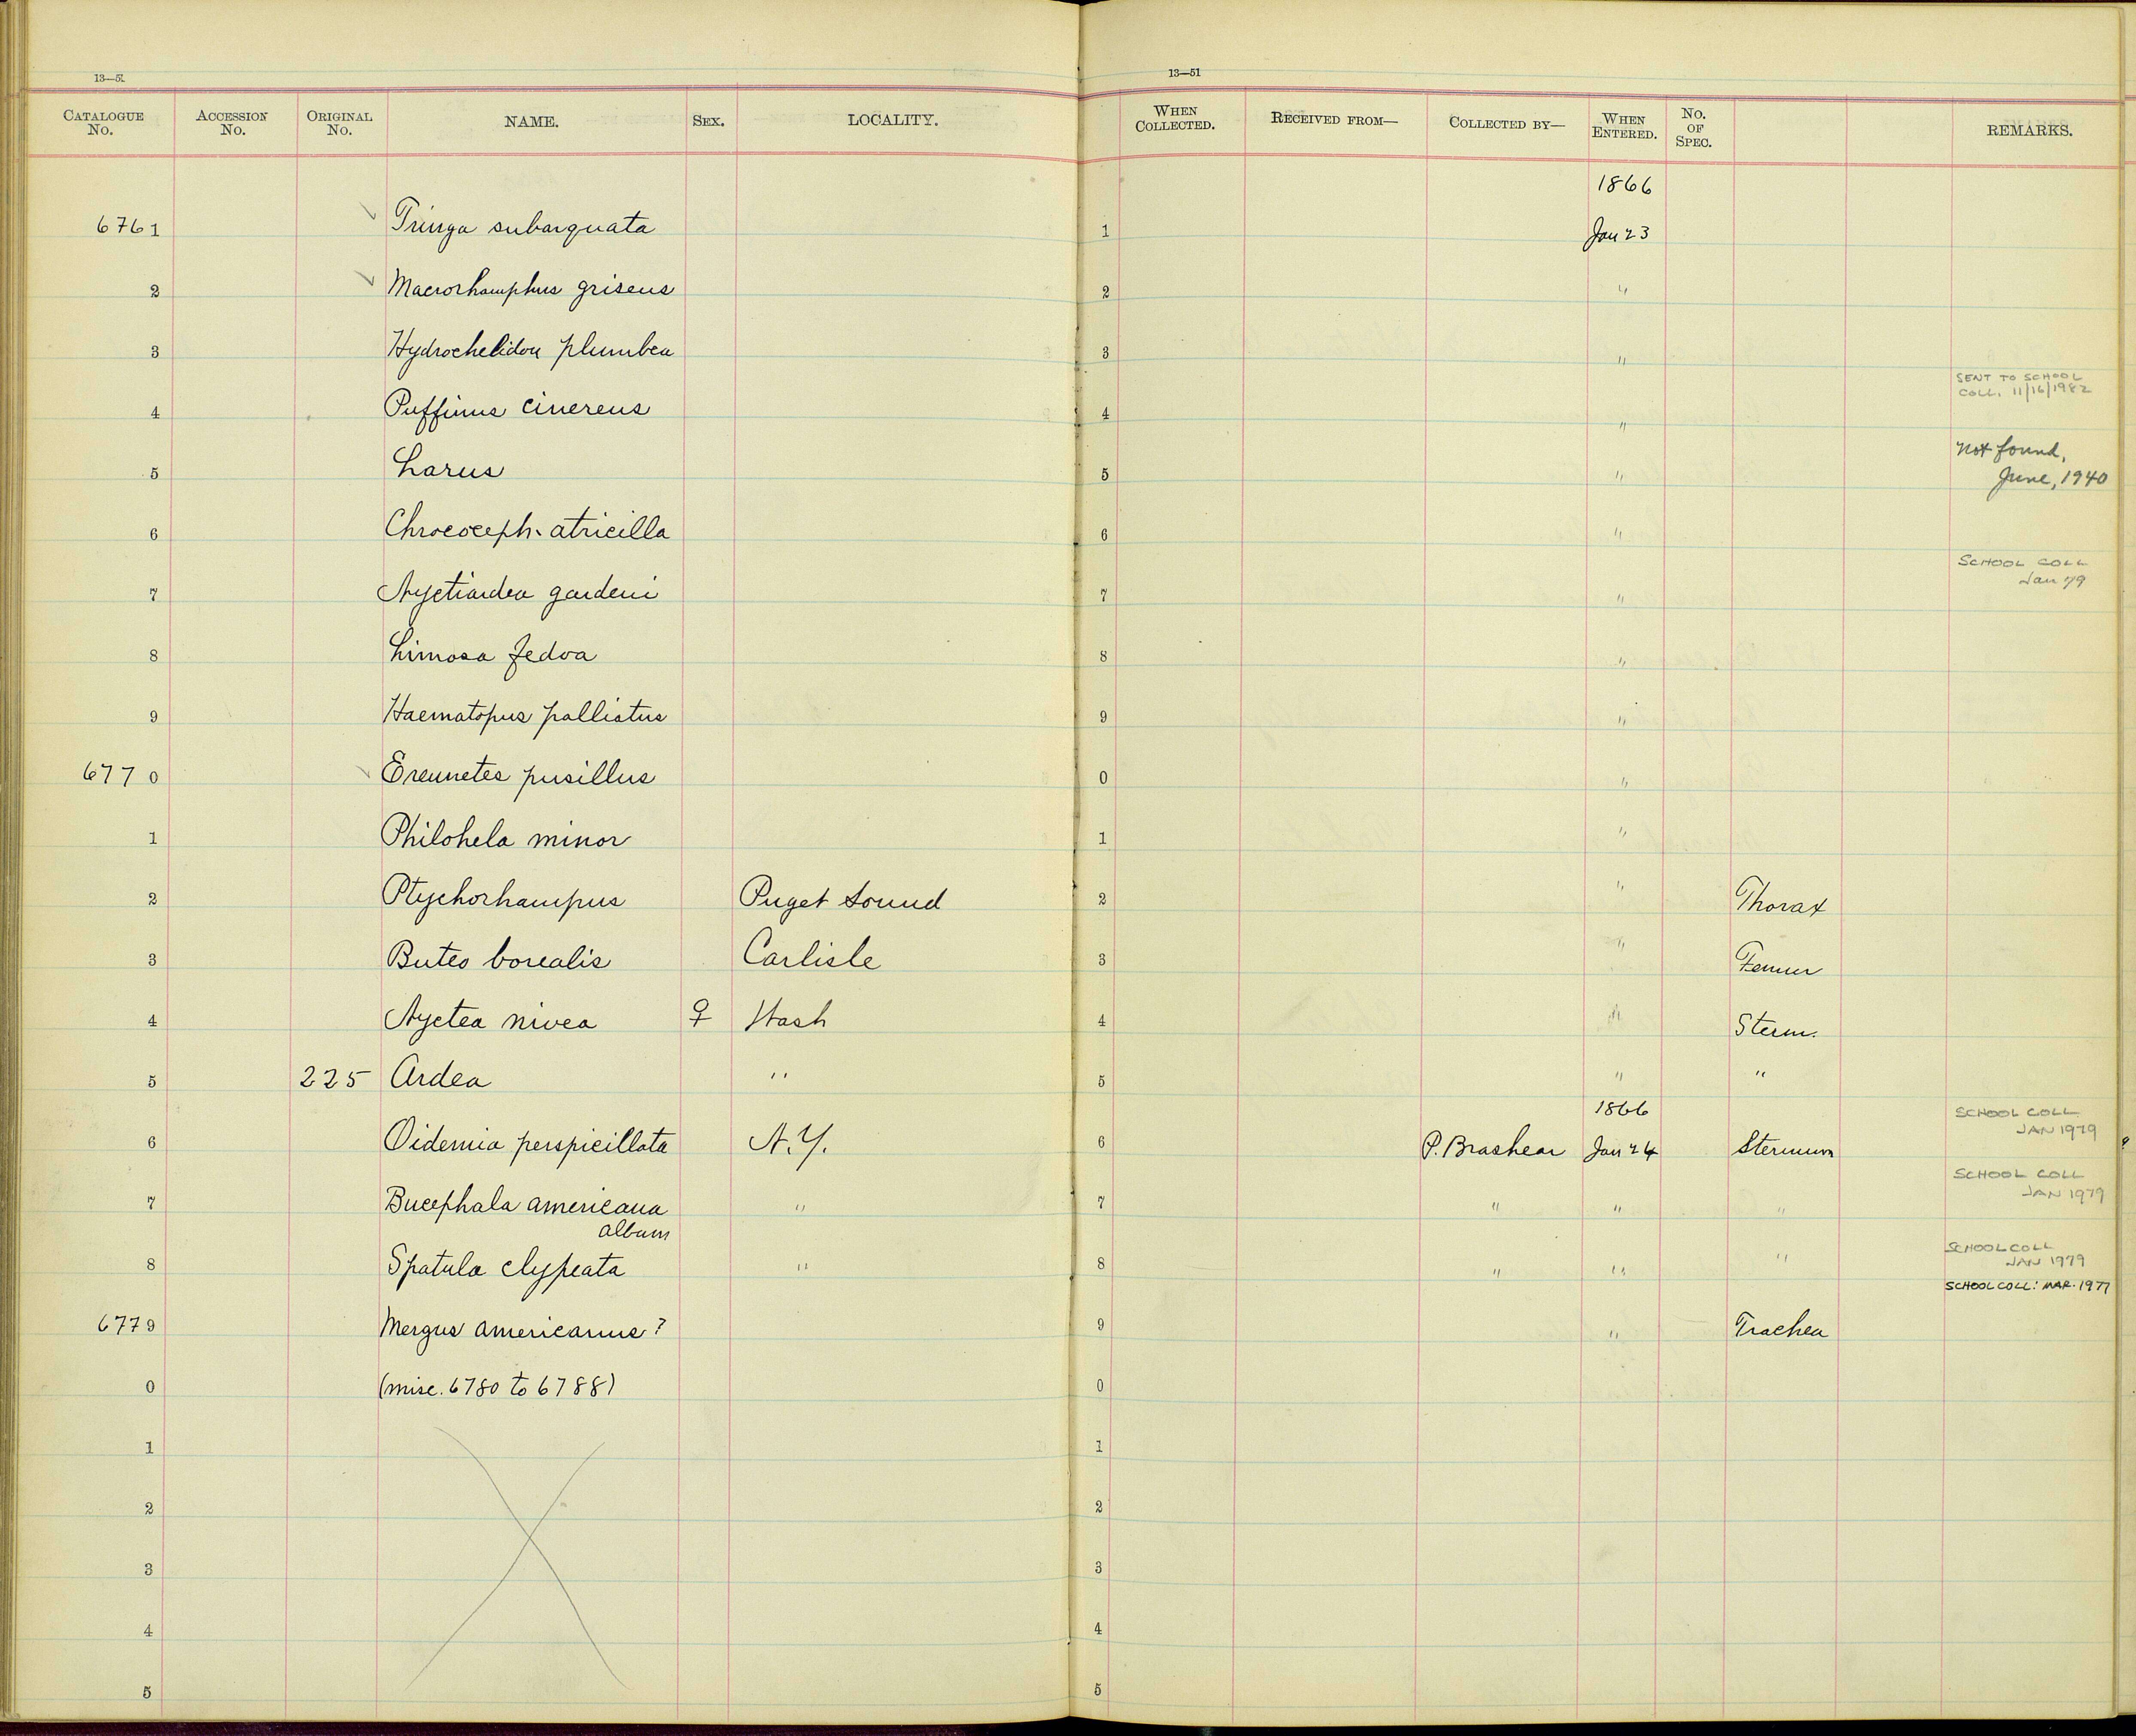 13—51
13—51
CATALOGUE No. ACCESSION No. ORIGINAL No. NAME. SEX. LOCALITY. WHEN COLLECTED. RECEIVED FROM— COLLECTED BY— WHEN ENTERED. No. OF SPEC. REMARKS.
1866
6761 Tringa subarquata 1 Jan 23
2 Macrorhamphus griseus 2 "
3 Hydrochelidon plumbea 3 "
SENT TO SCHOOL
COLL. 11/16/1982
4 Puffinus cinereus 4 "
Not found,
5 Larus 5 " June, 1940
6 Chroococeph. atricilla 6 "
SCHOOL COLL
7 Nyctiardea gardeni 7 " Jan 79
8 Limosa fedoa 8 "
9 Haematopus palliatus 9 "
6770 Ereunetes pusillus 0 "
1 Philohela minor 1 "
2 Ptychorhampus Puget Sound 2 " Thorax
3 Buteo borealis Carlisle 3 " Femur
4 Nyctea nivea ♀ Wash 4 " Stern.
5 225 Ardea " 5 " "
1866 SCHOOL COLL
6 Oidemia perspicillata N.Y. 6 P. Brashear Jan 24 Sternum JAN 1979
SCHOOL COLL
7 Bucephala americana " 7 " " " JAN 1979
album
SCHOOL COLL
8 Spatula clypeata " 8 " " " JAN 1979
SCHOOL COLL: MAR. 1977
6779 Mergus americanus? 9 " Trachea
0 (misc. 6780 to 6788) 0
1 1
2 2
3 3
4 4
5 5